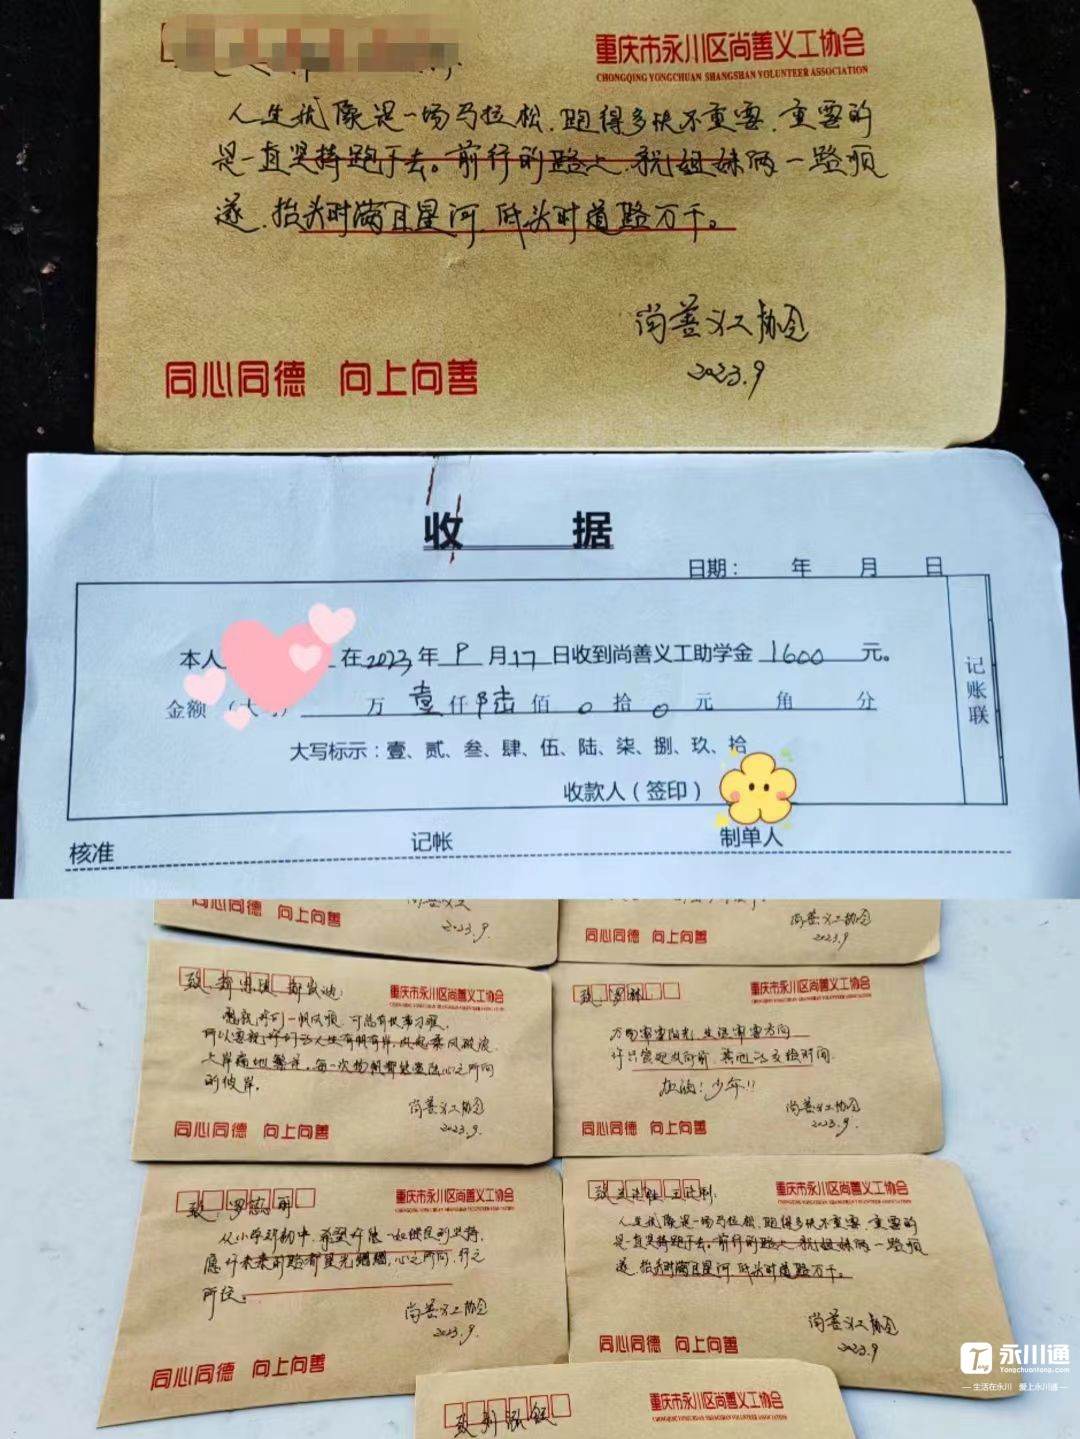 重庆市永川区尚善义工协会
CHONGQING YONGCHUAN SHANGSHAN VOLUNTEER ASSOCIATION
人生就像是一场马拉松，跑得多快不重要，重要的
是一直坚持跑下去。前行的路上，祝姐妹俩一路顺
遂，抬头时满目星河，低头时道路万千。
尚善义工协会
2023.9
同心同德 向上向善
收 据
日期： 年 月 日
本人 在2023年9月17日收到尚善义工助学金1600元。
金额（大写） 万壹仟陆佰0拾0元 角 分
大写标示：壹、贰、叁、肆、伍、陆、柒、捌、玖、拾
收款人（签印）
记账联
核准 记帐 制单人
同心同德 向上向善
2023.9.
尚善义工协会
2023.9
同心同德 向上向善
致：郑
重庆市永川区尚善义工协会
愿我们一帆风顺，可总有
心之所向
的彼岸。
尚善义工协会
2023.9.
同心同德 向上向善
致：罗林：
重庆市永川区尚善义工协会
万物 阳光，生活 方向
许 时间.
加油！少年！！
尚善义工协会
2023.9.
同心同德 向上向善
致：罗 丽
重庆市永川区尚善义工协会
从小学到初中，希望你能一如既往的坚持，
愿你未来的路都星光熠熠，心之所向，行之
所往。
尚善义工协会
2023.9.
同心同德 向上向善
致
重庆市永川区尚善义工协会
人生就像是一场马拉松，跑得多快不重要，重要的
是一直坚持跑下去。前行的路上，祝姐妹俩一路顺
遂，抬头时满目星河，低头时道路万千。
尚善义工协会
2023.9
同心同德 向上向善
致刘
重庆市永川区尚善义工协会
永川通
Yongchuantong.com
生活在永川 爱上永川通